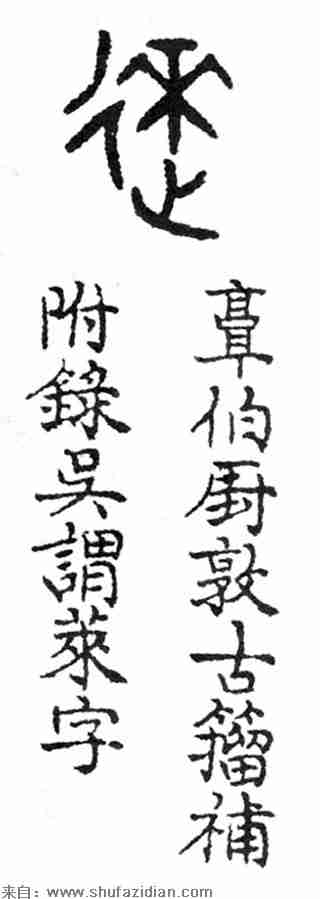 伯厨敦古籀補
附錄吳謂萊字
来自：www.shufazidian.com